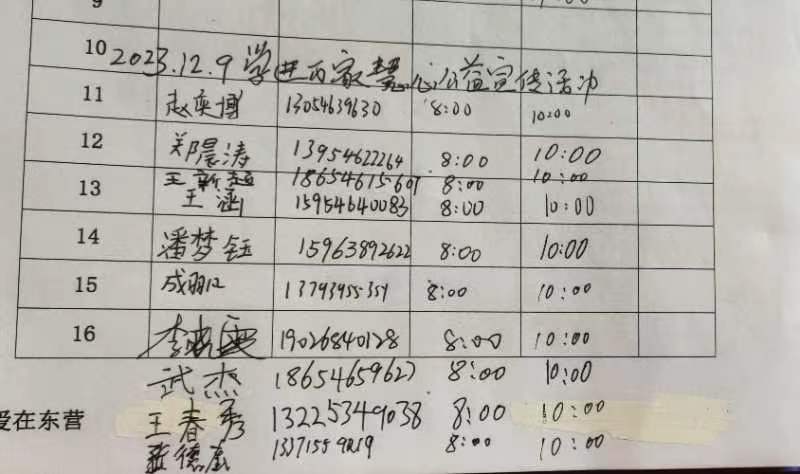 9
10:00
10 2023.12.9 学进万家慧心公益宣传活动
11 赵奕博 13054639630 8:00 10:00
12 郑晨涛 13954622264 8:00 10:00
王新超 18654615601 8:00 10:00
13 王涵 15954640083 8:00 10:00
14 潘梦钰 15963892622 8:00 10:00
15 成 13793955359 8:00 10:00
16 李 19026840128 8:00 10:00
武杰 18654659627 8:00 10:00
爱在东营 王春秀 13225349038 8:00 10:00
德 8:00 10:00